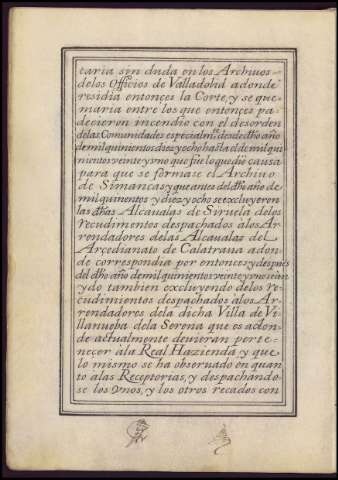 taria sin duda en los Archiuos
delos Officios de Valladolid adonde
residia entonçes la Corte, y se que-
maria entre los que entonçes pa-
decieron incendio con el desorden
delas Comunidades especialmte. desde dho año
de mil quinientos diez y ocho hasta el de mil qui
nientos veinte y vno que fue lo que dio causa
para que se formase el Archiuo
de Simancas y que antes del dho año de
mil quinentos y diez y ocho se excluyeron
las dhas Alcaualas de Siruela delos
recudimientos despachados alos Ar-
rendadores delas Alcaualas del
Arçedianato de Calatraua adon-
de correspondia por entonces y despues
del dho año de mil quinientos veinte y vno
ydo tambien excluyendo delos re-
cudimientos despachados alos Ar-
rendadores dela dicha Villa de Vi-
llanueba dela Serena que es adon-
de actualmente deuieran perte-
neçer àla Real Hazienda y que
lo mismo se ha observado en quan
to alas Receptorias, y despachando-
se los vnos, y los otros recados con